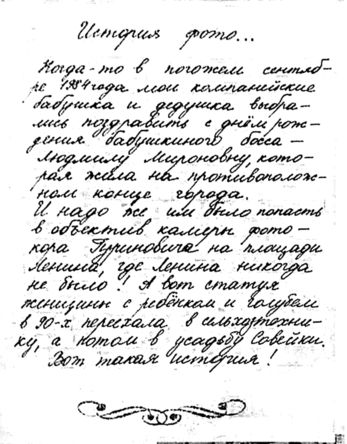 История фото...
Когда-то в погожем сентяб-
ре 1984 года мои компанейские
бабушка и дедушка выбра-
лись поздравить с днём рож-
дения бабушкиного босса –
Людмилу Мироновну, кото-
рая жила на противополож-
ном конце города.
И надо же им было попасть
в объектив камеры фото-
кора Пуриновича на площади
Ленина, где Ленина никогда
не было! А вот статуя
женщины с ребёнком и голубем
в 90-х переехала в сельхозтехни-
ку, а потом в усадьбу Совейки.
Вот такая история!